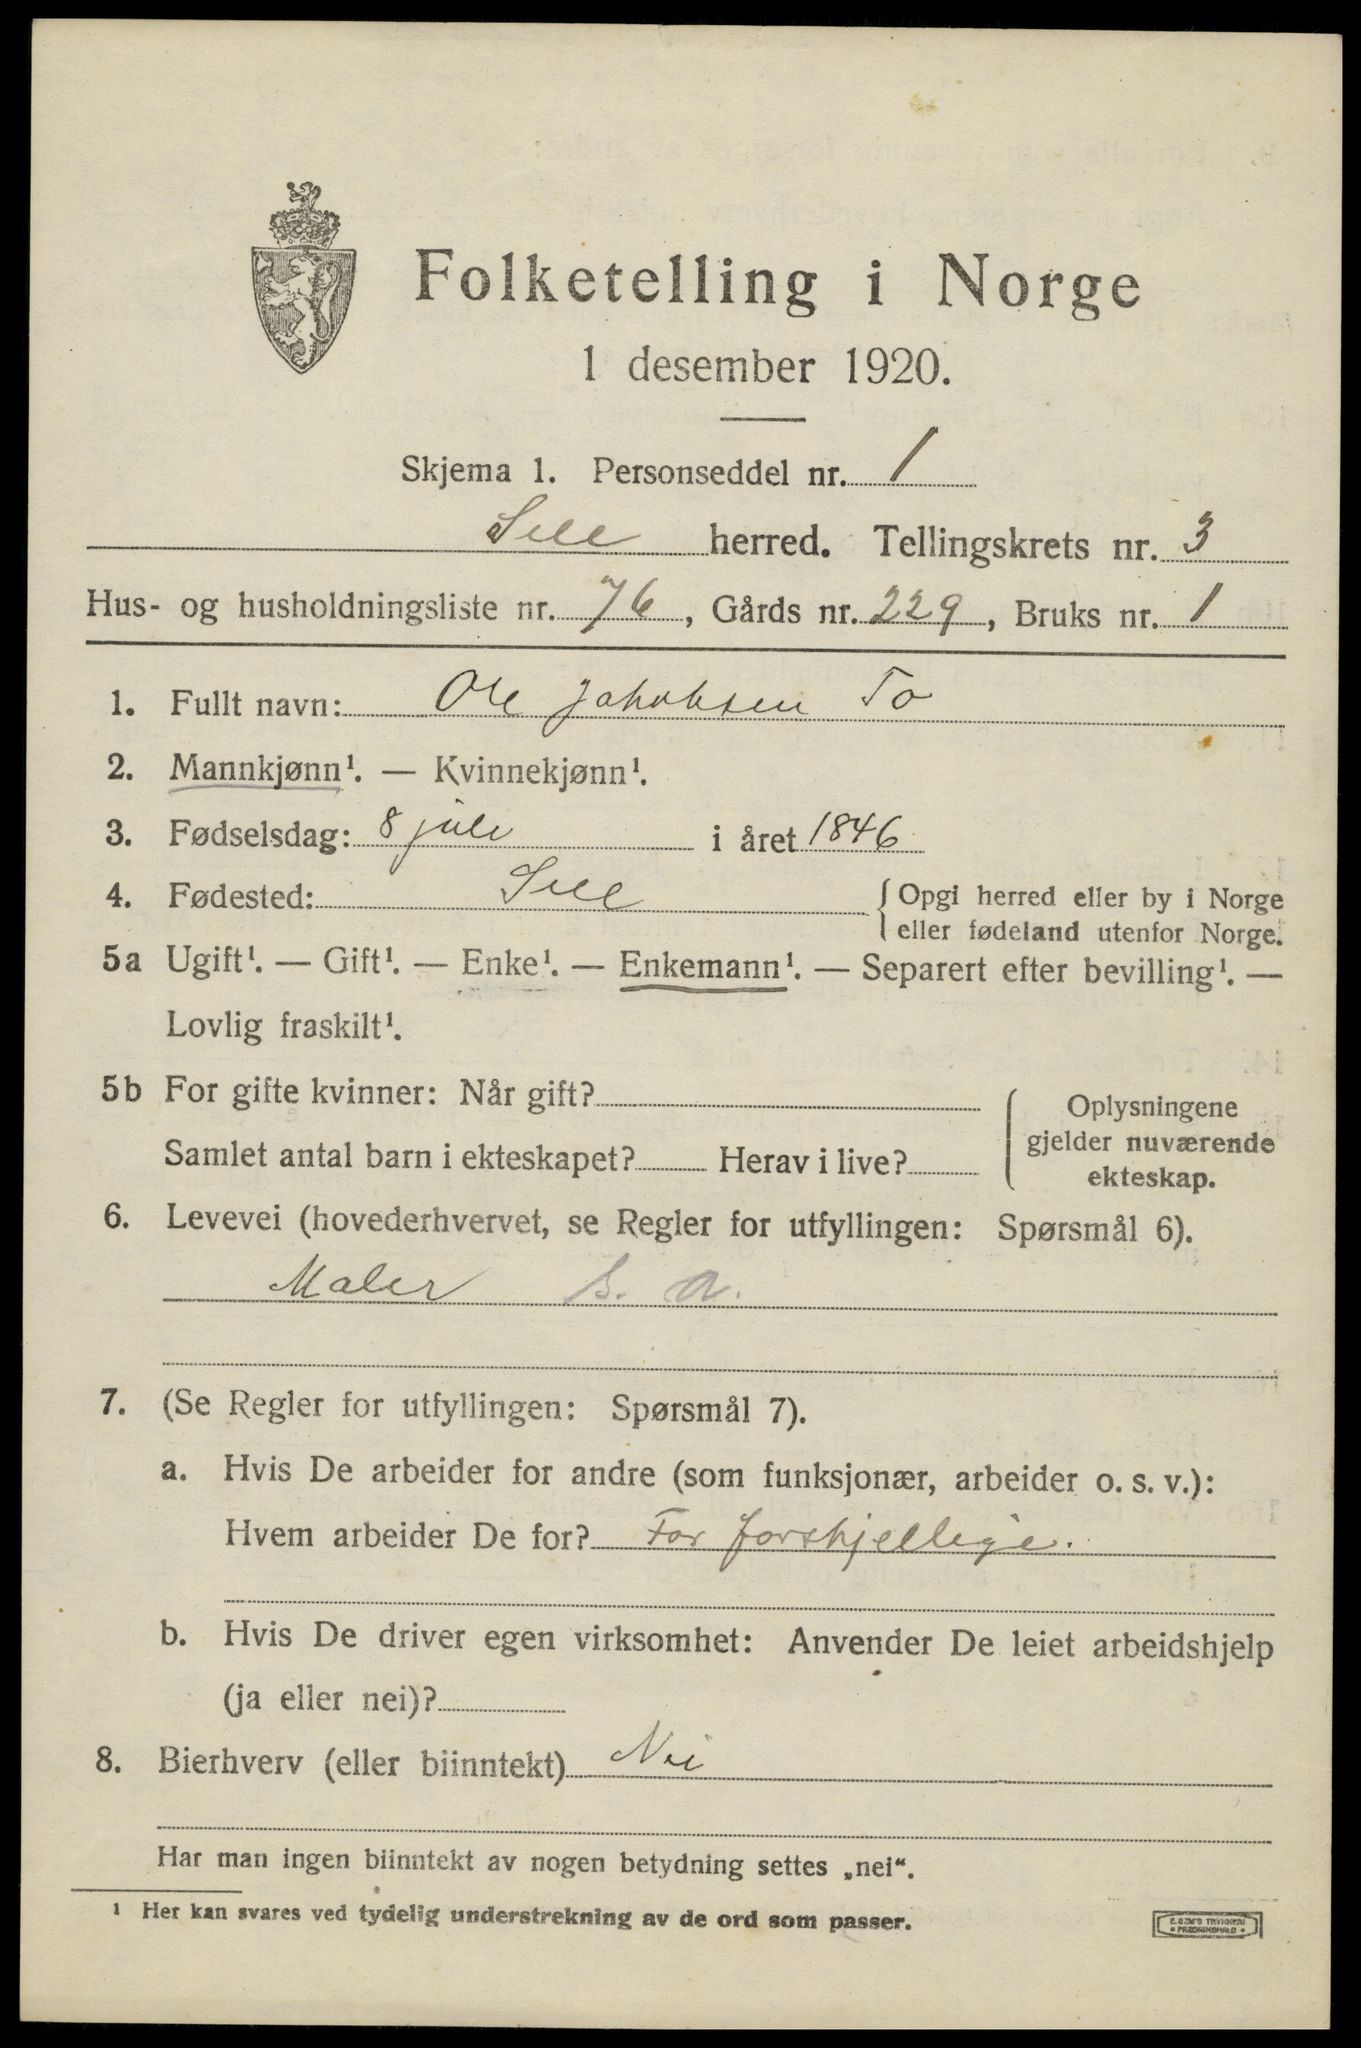 Folketelling i Norge
1 desember 1920.
Skjema 1. Personseddel nr. 1
Sell herred. Tellingskrets nr. 3
Hus- og husholdningsliste nr. 76, Gårds nr. 229, Bruks nr. 1
1. Fullt navn: Ole Jakobsen To
2. Mannkjønn¹. — Kvinnekjønn¹.
3. Fødselsdag: 8 juli i året 1846
4. Fødested: Sell { Opgi herred eller by i Norge
eller fødeland utenfor Norge.
5a Ugift¹. — Gift¹. — Enke¹. — Enkemann¹. — Separert efter bevilling¹. —
Lovlig fraskilt¹.
5b For gifte kvinner: Når gift?
Samlet antal barn i ekteskapet? Herav i live?
Oplysningene
gjelder nuværende
ekteskap.
6. Levevei (hovederhvervet, se Regler for utfyllingen: Spørsmål 6).
Maler s. a.
7. (Se Regler for utfyllingen: Spørsmål 7).
a. Hvis De arbeider for andre (som funksjonær, arbeider o. s. v.):
Hvem arbeider De for? For forskjellige.
b. Hvis De driver egen virksomhet: Anvender De leiet arbeidshjelp
(ja eller nei)?
8. Bierhverv (eller biinntekt) Nei
Har man ingen biinntekt av nogen betydning settes „nei“.
¹ Her kan svares ved tydelig understrekning av de ord som passer.
E. SEM'S TRYKKERI
• FREDRIKSHALD •